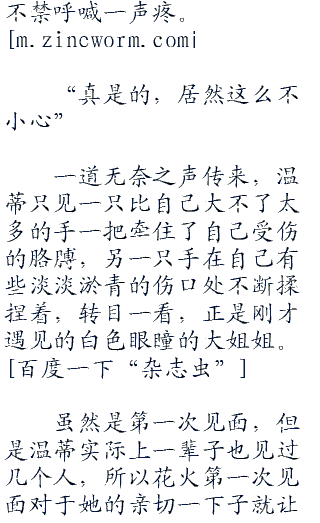 不禁呼喊一声疼。
[m.zincworm.com]
“真是的，居然这么不
小心”
一道无奈之声传来，温
蒂只见一只比自己大不了太
多的手一把牵住了自己受伤
的胳膊，另一只手在自己有
些淡淡淤青的伤口处不断揉
捏着，转目一看，正是刚才
遇见的白色眼瞳的大姐姐。
[百度一下“杂志虫”]
虽然是第一次见面，但
是温蒂实际上一辈子也见过
几个人，所以花火第一次见
面对于她的亲切一下子就让